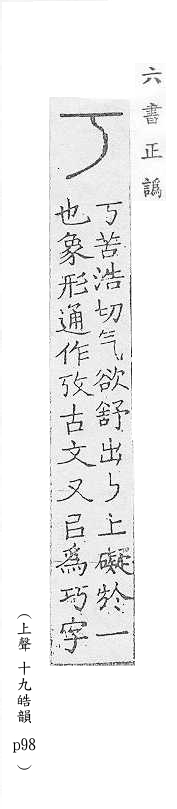 六書正譌
丂
丂苦浩切气欲舒出ㄅ上礙於一
也象形通作攷古文又㠯爲巧字
（上聲 十九皓韻 p98）